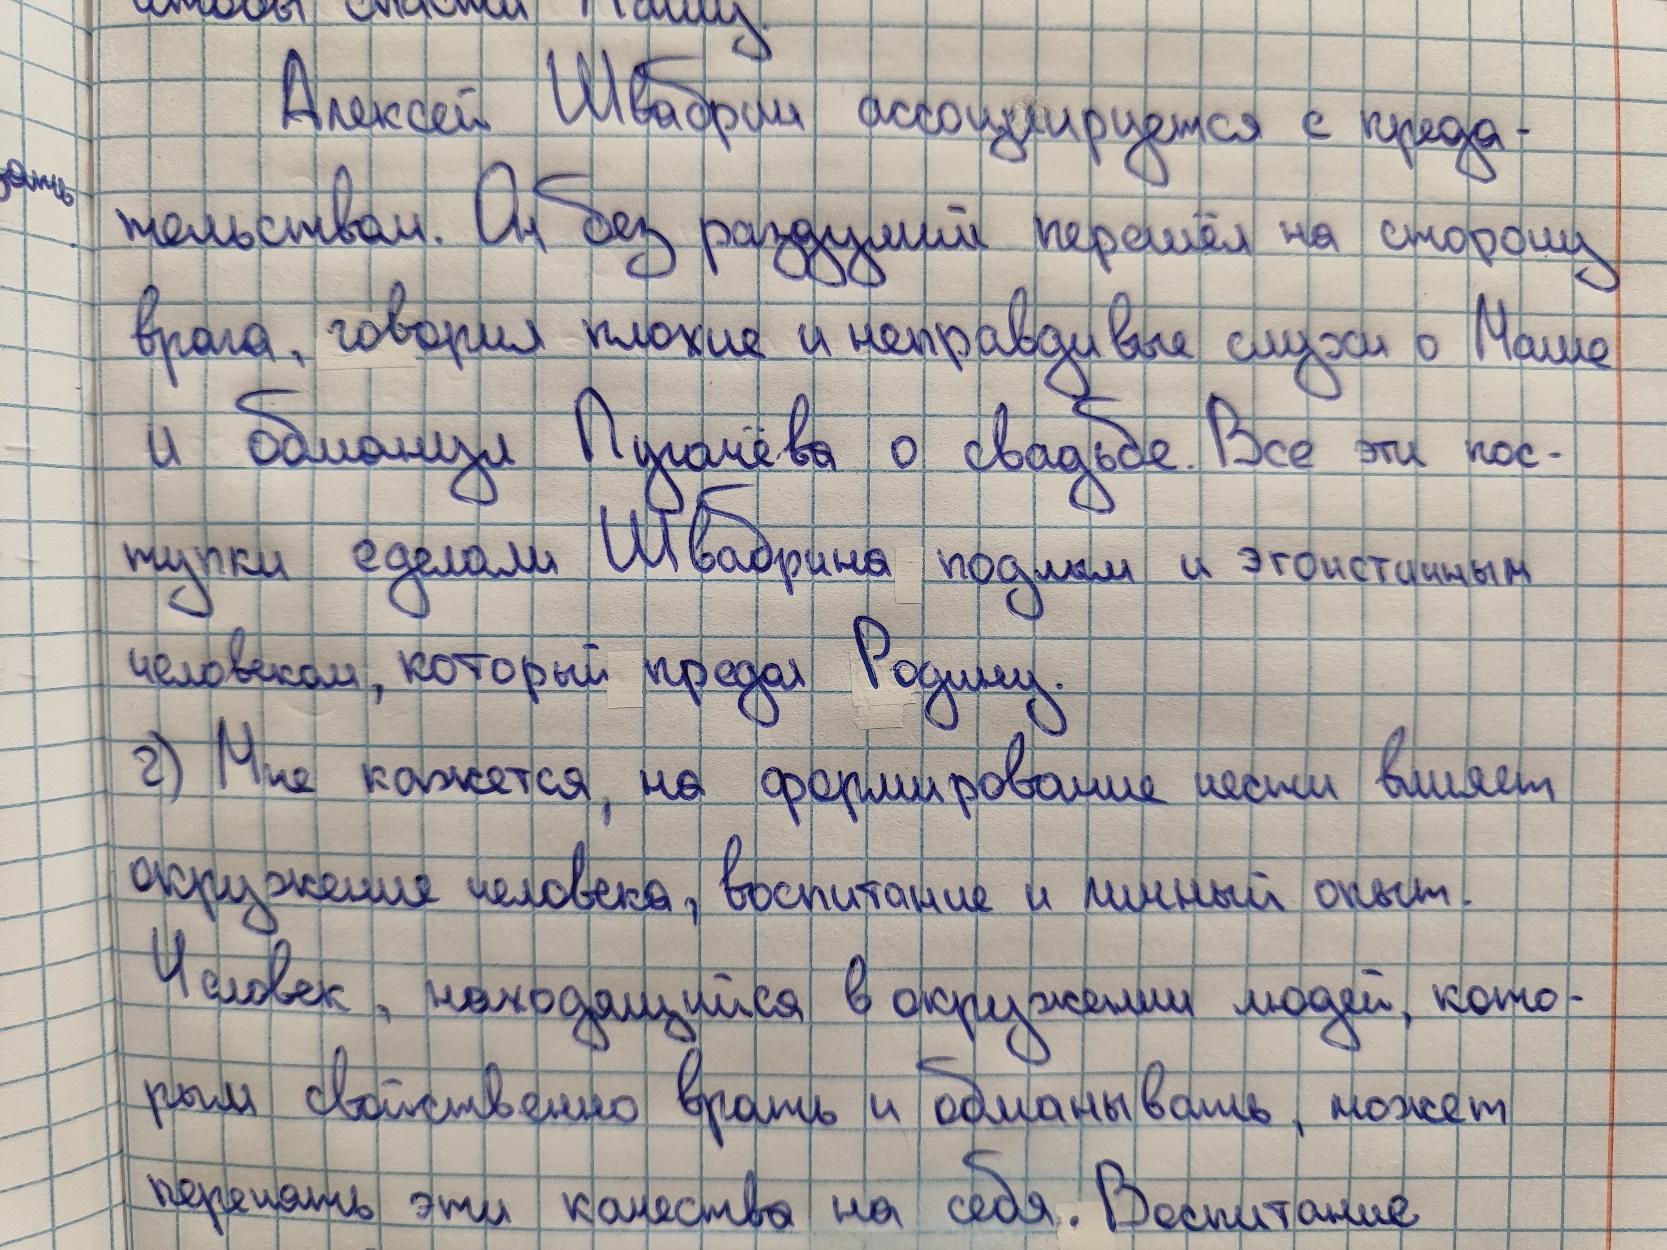 чтобы спасти Машу.
Алексей Швабрин ассоциируется с преда-
тельством. Он без раздумий перешёл на сторону
врага, говорил плохие и неправдивые слухи о Маше
и обманул Пугачёва о свадьбе. Все эти пос-
тупки сделали Швабрина подлым и эгоистичным
человеком, который предал Родину.
2) Мне кажется, на формирование чести влияет
окружение человека, воспитание и личный опыт.
Человек, находящийся в окружении людей, кото-
рым свойственно врать и обманывать, может
перенять эти качества на себя. Воспитание